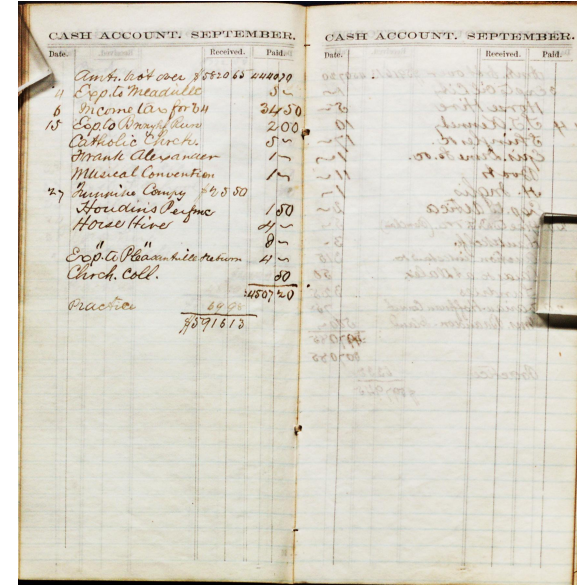 CASH ACCOUNT. SEPTEMBER.
Date. Received. Paid.
Amt. bot over $5820 65 4440 70
4 Exp. to Meadville 5 ~
6 Income tax for 64 34 50
15 Exp. to Run 2 00
Catholic Chrch. 5 ~
Frank Alexander 1 ~
Musical Convention 1 ~
27 Compy $25 50
Houdin's Perfmc 1 50
Horse Hire 4 ~
" " 8 ~
Exp. to Pleasantville & return 4 ~
Chrch. Coll. 50
4507 20
Practice 69 98
$5916 13
CASH ACCOUNT. SEPTEMBER.
Date. Received. Paid.